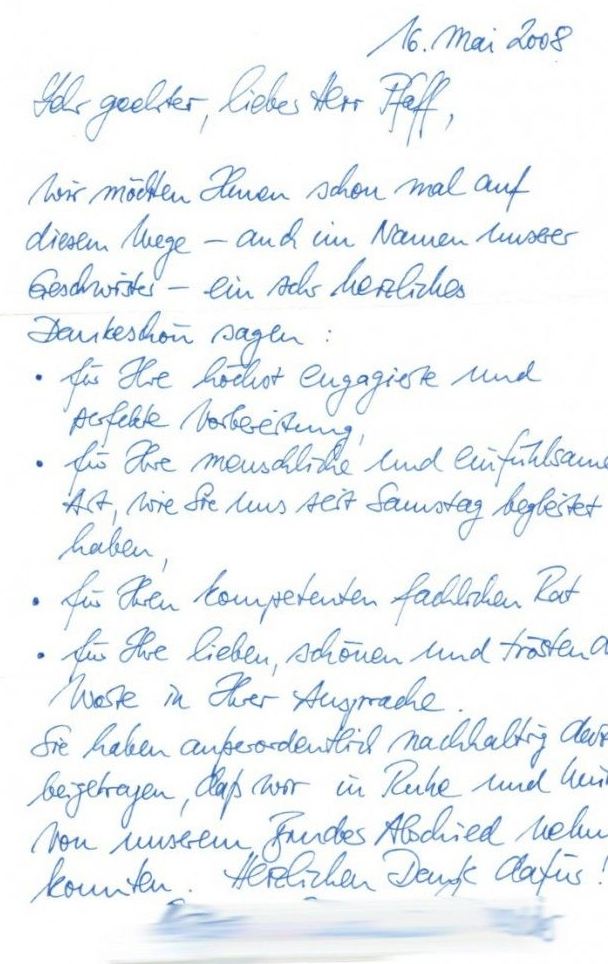 16. Mai 2008
Sehr geehrter, lieber Herr Pfaff,
wir möchten Ihnen schon mal auf
diesem Wege – auch im Namen unserer
Geschwister – ein sehr herzliches
Dankeschön sagen :
• für Ihre höchst engagierte und
perfekte Vorbereitung,
• für Ihre menschliche und einfühlsame
Art, wie Sie uns seit Samstag begleitet
haben,
• für Ihren kompetenten fachlichen Rat
• für Ihre lieben, schönen und trösten
Worte in Ihrer Ansprache.
Sie haben außerordentlich nachhaltig
beigetragen, daß wir in Ruhe und
von unserem Bruder Abschied
konnten. Herzlichen Dank dafür!